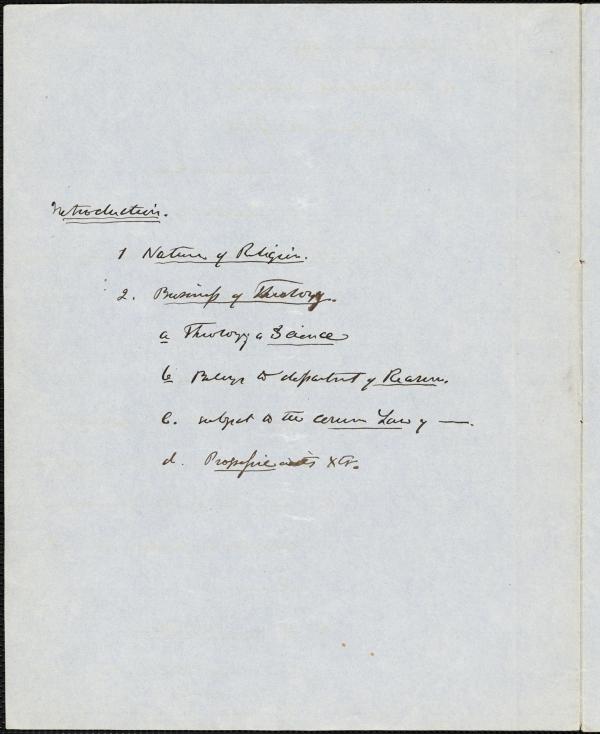 Introduction.
1 Nature of Religion.
2. Business of Theology.
a Theology a Science
b Belongs to department of Reason.
c. subject to the Law of —.
d. &c.